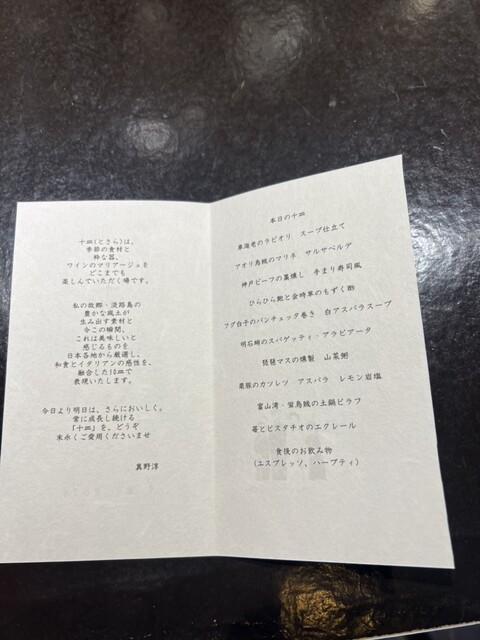 十皿(とさら)は、
季節の食材と
粋な器、
ワインのマリアージュを
どこまでも
楽しんでいただく場です。
私の故郷・淡路島の
豊かな風土が
生み出す素材と
今この瞬間、
これは美味しいと
感じるものを
日本各地から厳選し、
和食とイタリアンの感性を、
融合した10皿で
表現いたします。
今日より明日は、さらにおいしく。
常に成長し続ける
「十皿」を、どうぞ
末永くご愛用くださいませ
真野淳
本日の十皿
車海老のラビオリ スープ仕立て
アオリ烏賊のマリネ サルサベルデ
神戸ビーフの藁燻し 手まり寿司風
ひらひら鮑と金時草のもずく酢
フグ白子のパンチェッタ巻き 白アスパラスープ
明石蛸のスパゲッティ・アラビアータ
琵琶マスの燻製 山菜粥
栗豚のカツレツ アスパラ レモン岩塩
富山湾・蛍烏賊の土鍋ピラフ
苺とピスタチオのエクレール
食後のお飲み物
(エスプレッソ、ハーブティ)